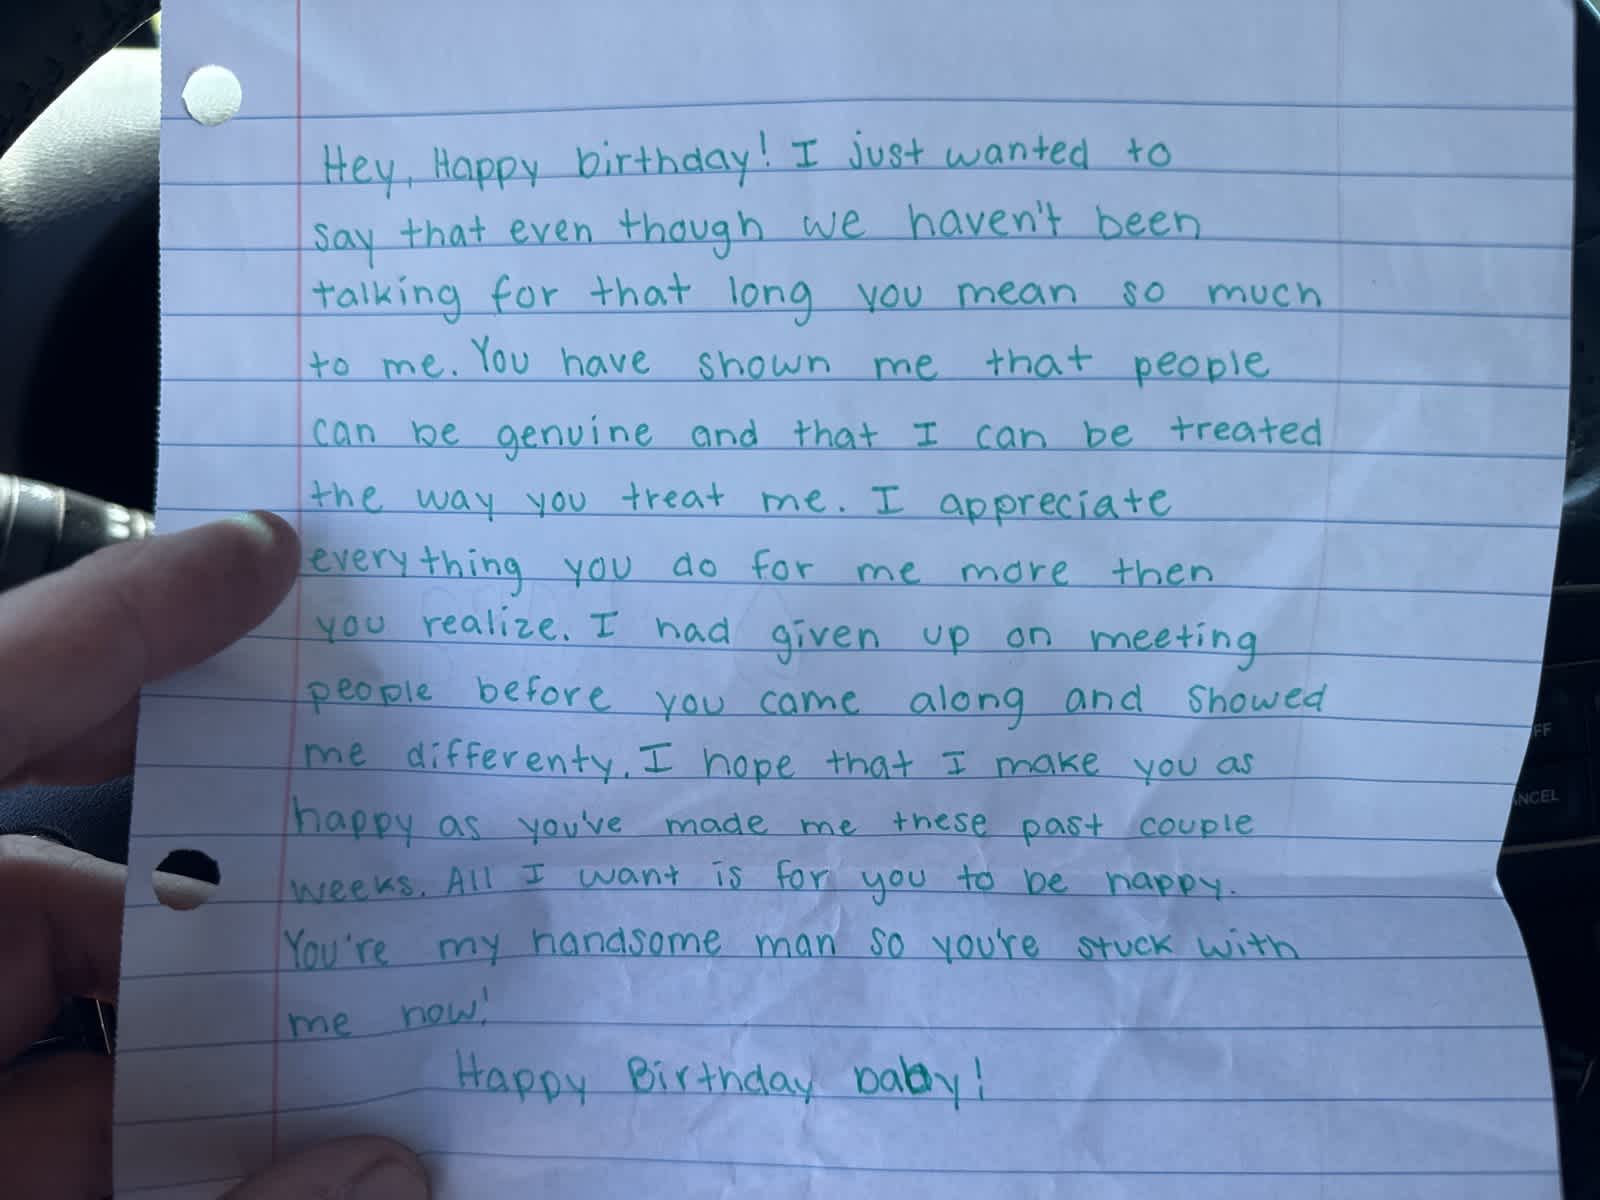 Hey, Happy birthday! I just wanted to
say that even though we haven't been
talking for that long you mean so much
to me. You have shown me that people
can be genuine and that I can be treated
the way you treat me. I appreciate
everything you do for me more then
you realize. I had given up on meeting
people before you came along and showed
me differenty. I hope that I make you as
happy as you've made me these past couple
weeks. All I want is for you to be happy.
You're my handsome man so you're stuck with
me now!
Happy Birthday baby!
FF
ANCEL